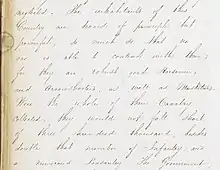 neglected. The inhabitants of this
Country are devoid of principle but
powerful, so much so that no
one is able to contend with them;
for they are robust and Horsemen,
and Arquebusiers, as well as Matchlock
Were the whole of their Cavalry
collected, they would not fall short
of three hundred thousand, besides
double that number of Infantry and
a numerous Peasantry. The Government